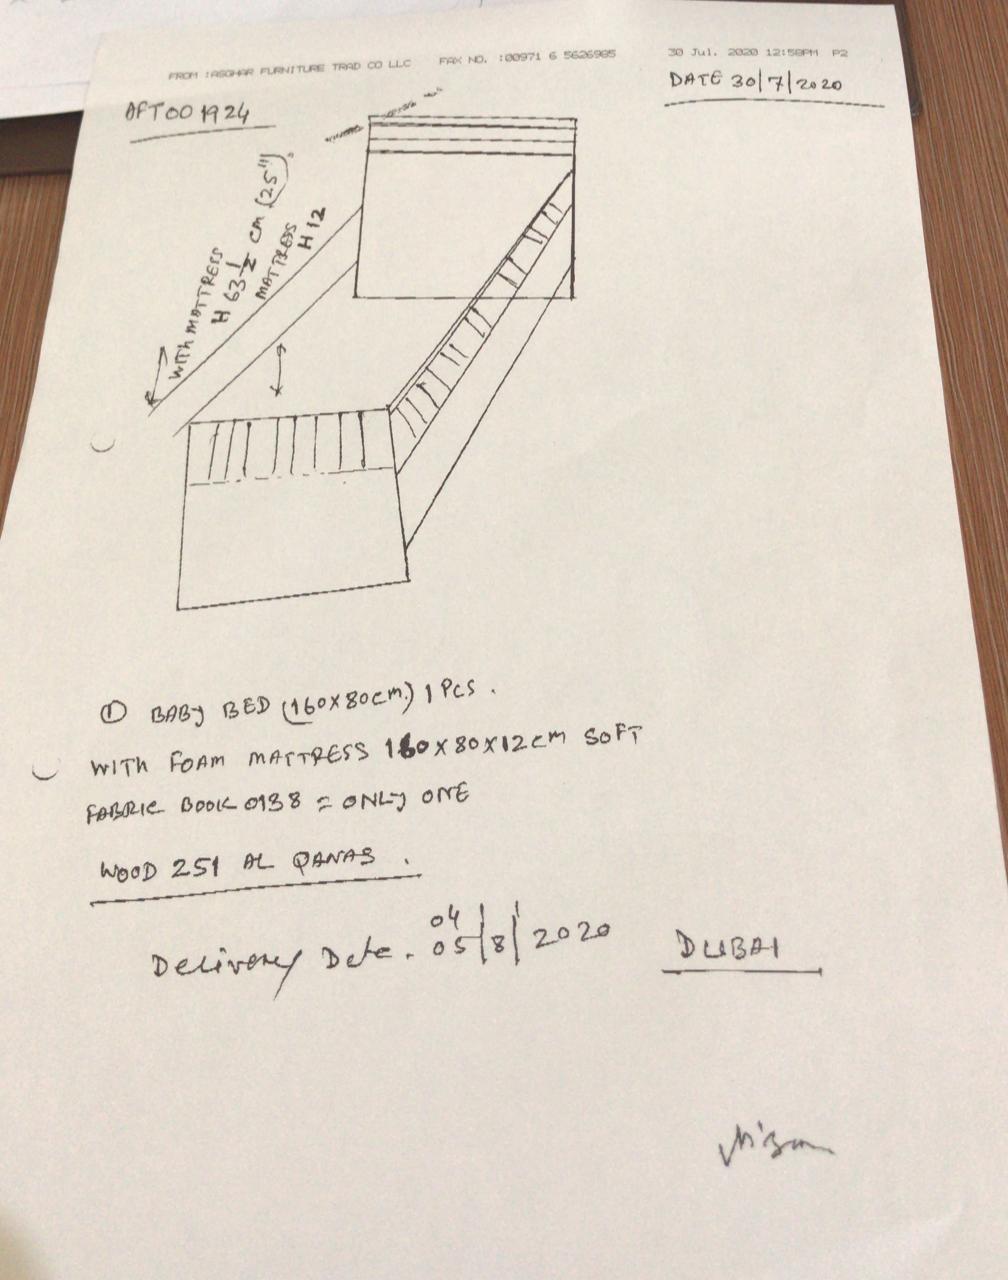 FROM :ASGHAR FURNITURE TRAD CO LLC FAX NO. :00971 6 5626985 30 Jul. 2020 12:58PM P2
DATE 30/7/2020
AFT001924
WITH MATTRESS
H 63 1/2 CM (25")
MATTRESS
H 12
① BABY BED (160X80cm) 1 PCS.
WITH FOAM MATTRESS 160X80X12CM SOFT
FABRIC BOOK 0138 = ONLY ONE
WOOD 251 AL QANAS .
04
Delivery Date. 05/8/2020
DUBAI